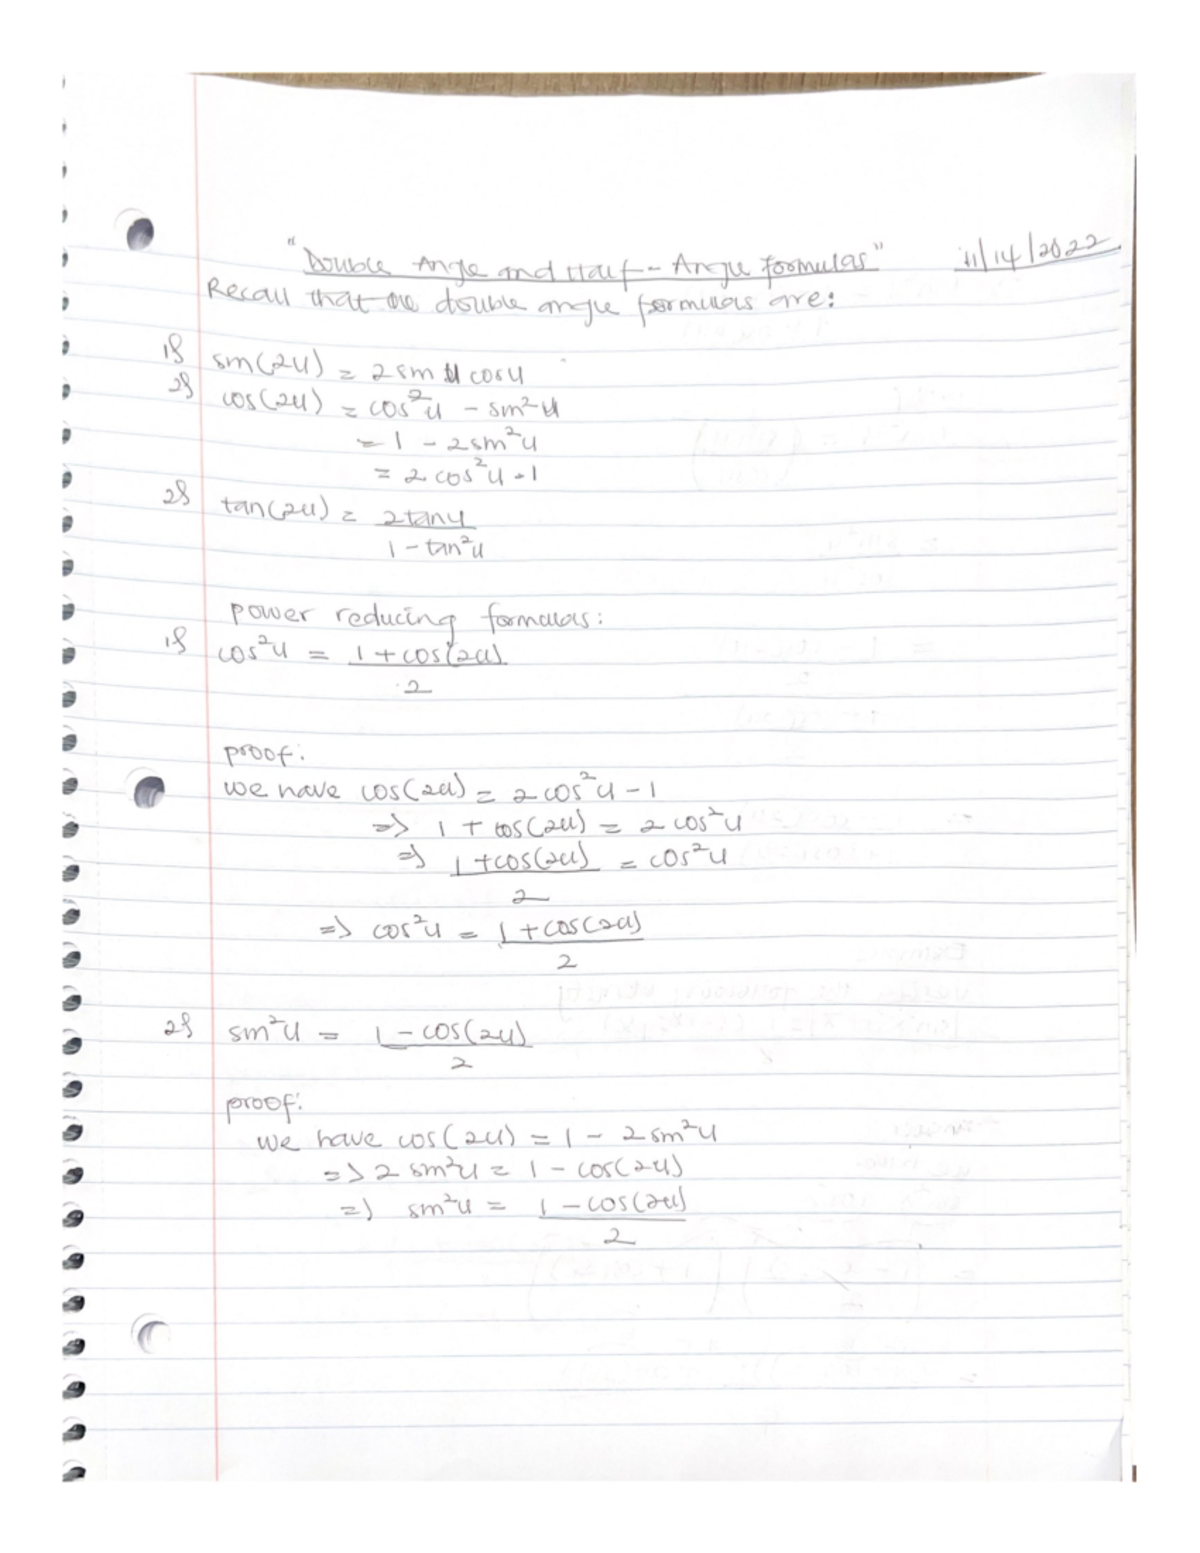 "Double Angle and Half-Angle formulas" 11/14/2022
Recall that the double angle formulas are:
1§ sin(2u) = 2 sin u cos u
2§ cos(2u) = cos²u - sin²u
= 1 - 2sin²u
= 2 cos²u - 1
2§ tan(2u) = 2tanu
1 - tan²u
power reducing formulas:
1§ cos²u = 1 + cos(2u)
2
proof:
we have cos(2u) = 2 cos²u - 1
=> 1 + cos(2u) = 2 cos²u
=> 1 + cos(2u) = cos²u
2
=> cos²u = 1 + cos(2u)
2
2§ sin²u = 1 - cos(2u)
2
proof:
we have cos(2u) = 1 - 2 sin²u
=> 2 sin²u = 1 - cos(2u)
=> sin²u = 1 - cos(2u)
2